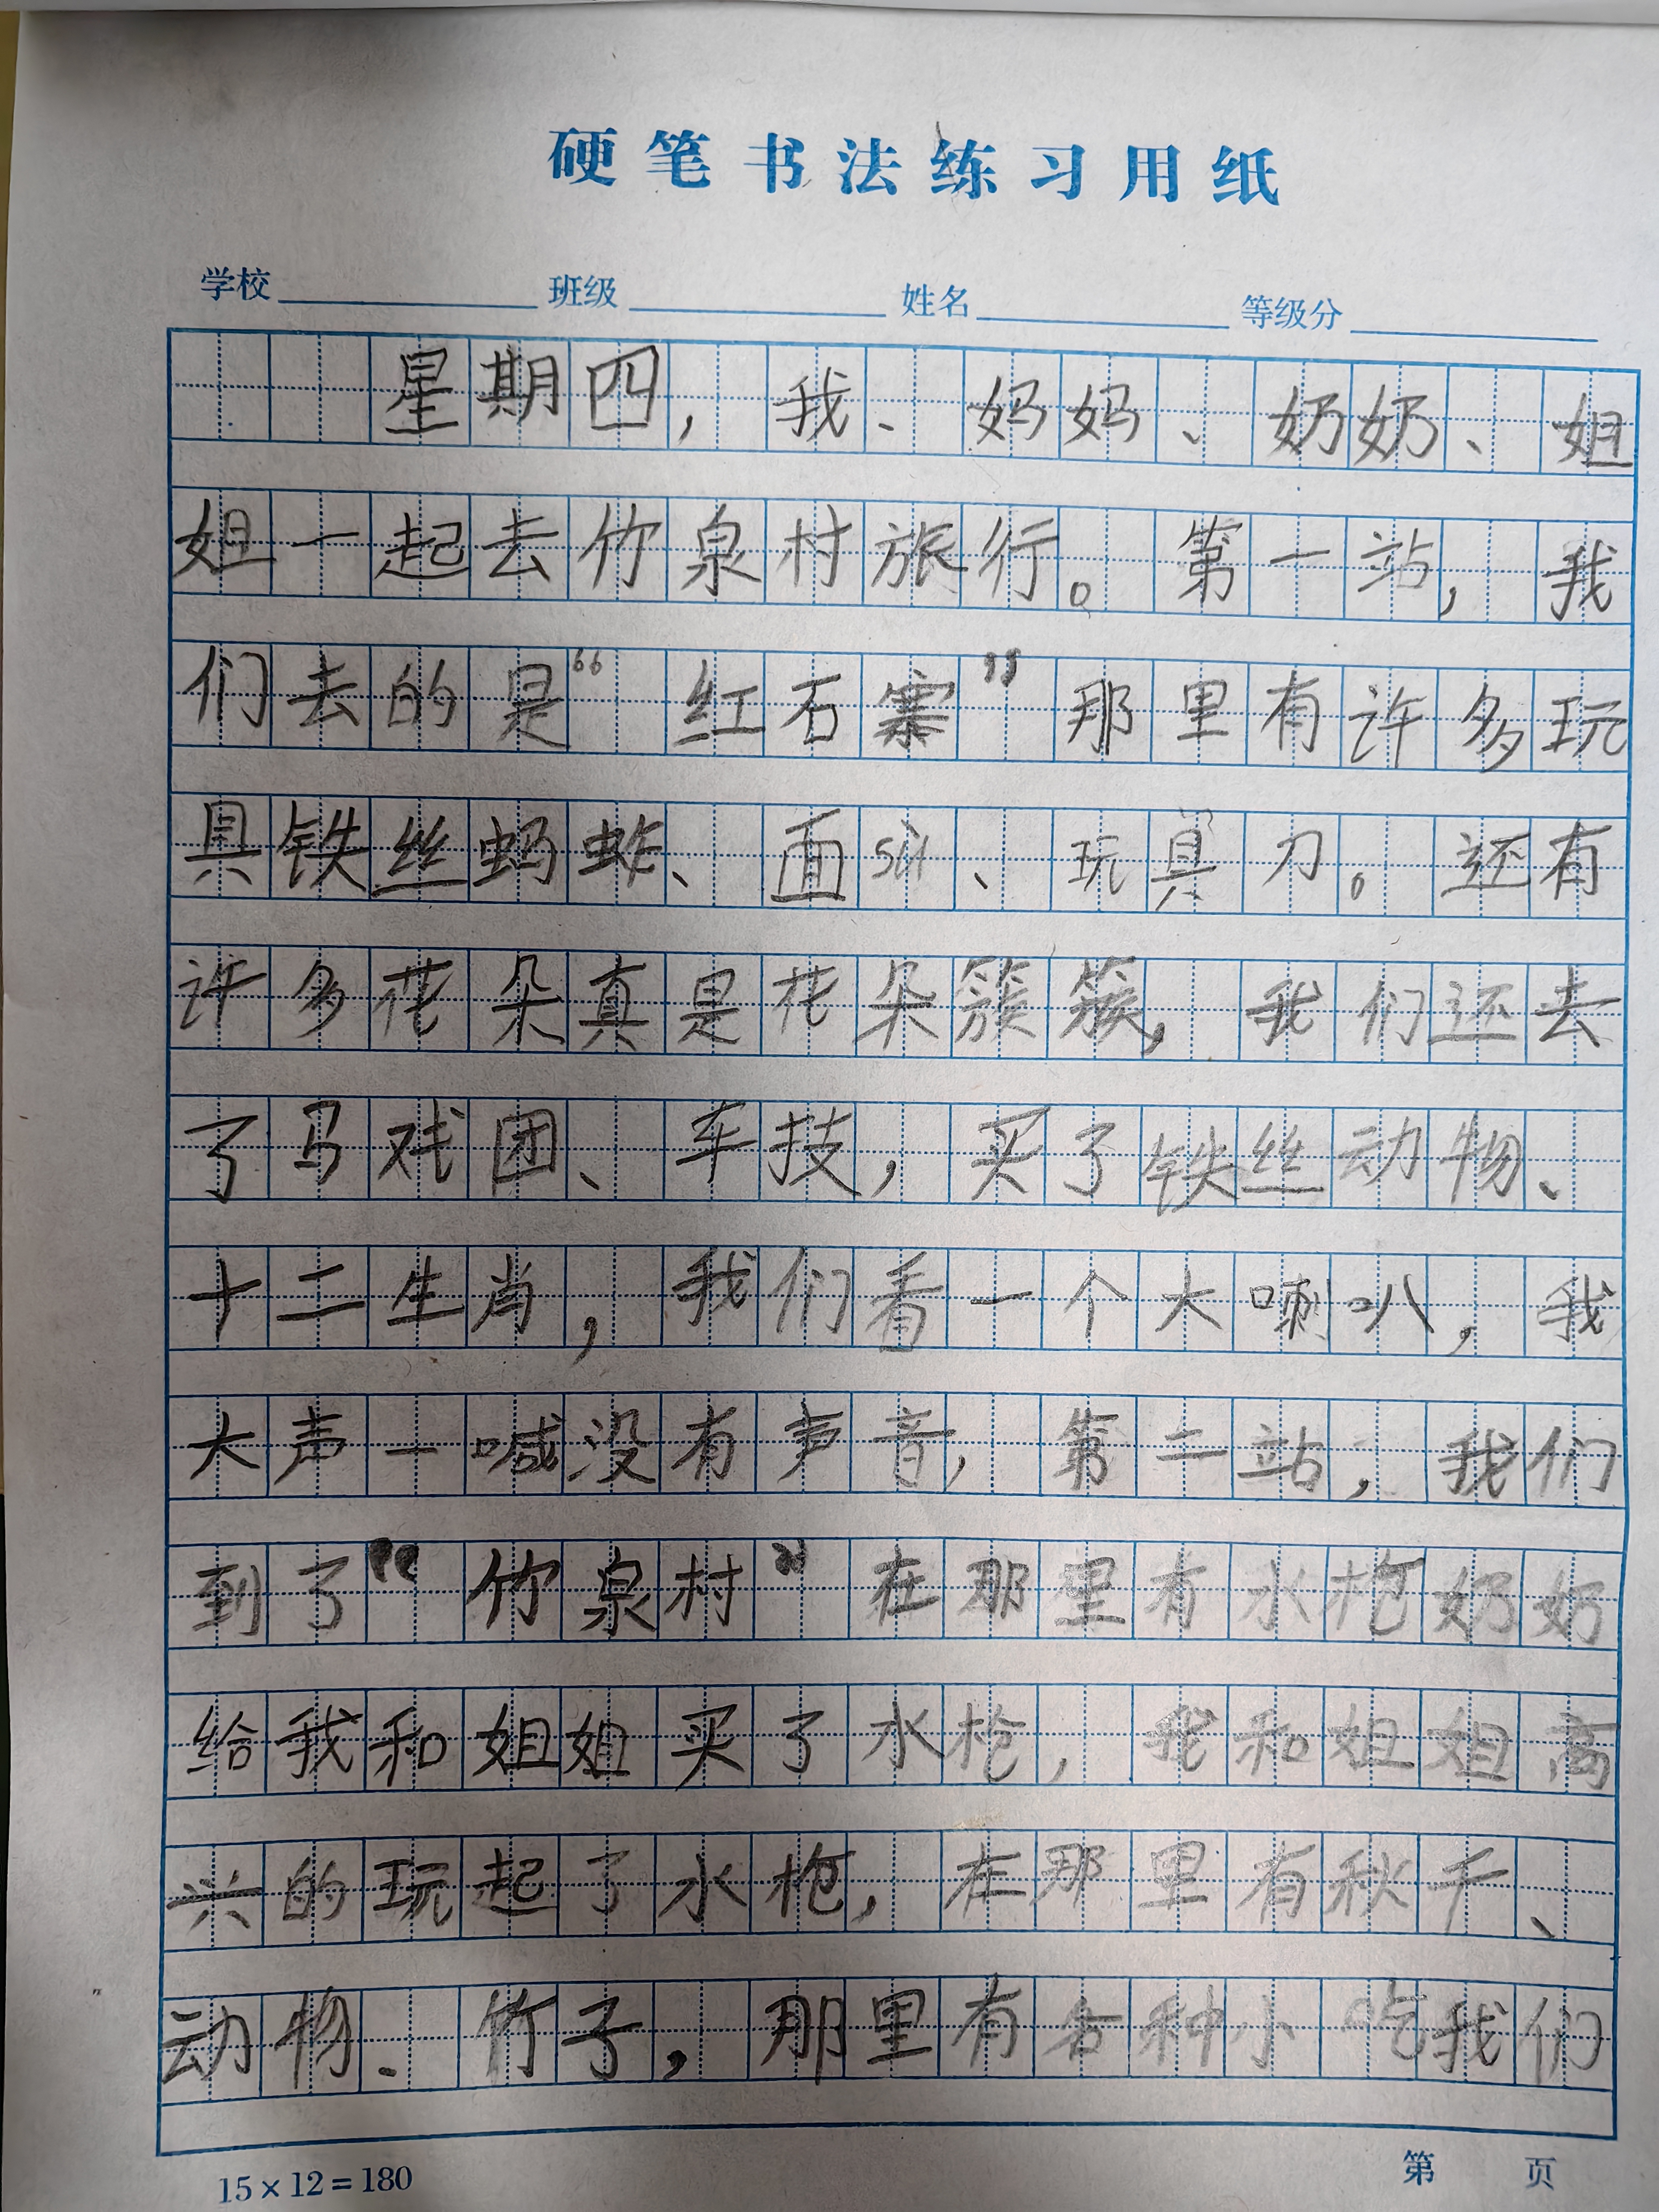 硬笔书法练习用纸
学校 班级 姓名 等级分
星期四，我、妈妈、奶奶、姐
姐一起去竹泉村旅行。第一站，我
们去的是“红石寨”那里有许多玩
具铁丝蚂蚱、面sù、玩具刀。还有
许多花朵真是花朵簇簇，我们还去
了马戏团、车技，买了铁丝动物、
十二生肖，我们看一个大喇叭，我
大声一喊没有声音，第二站，我们
到了“竹泉村”在那里有水枪奶奶
给我和姐姐买了水枪，我和姐姐高
兴的玩起了水枪，在那里有秋千、
动物、竹子，那里有各种小吃我们
15×12=180
第 页